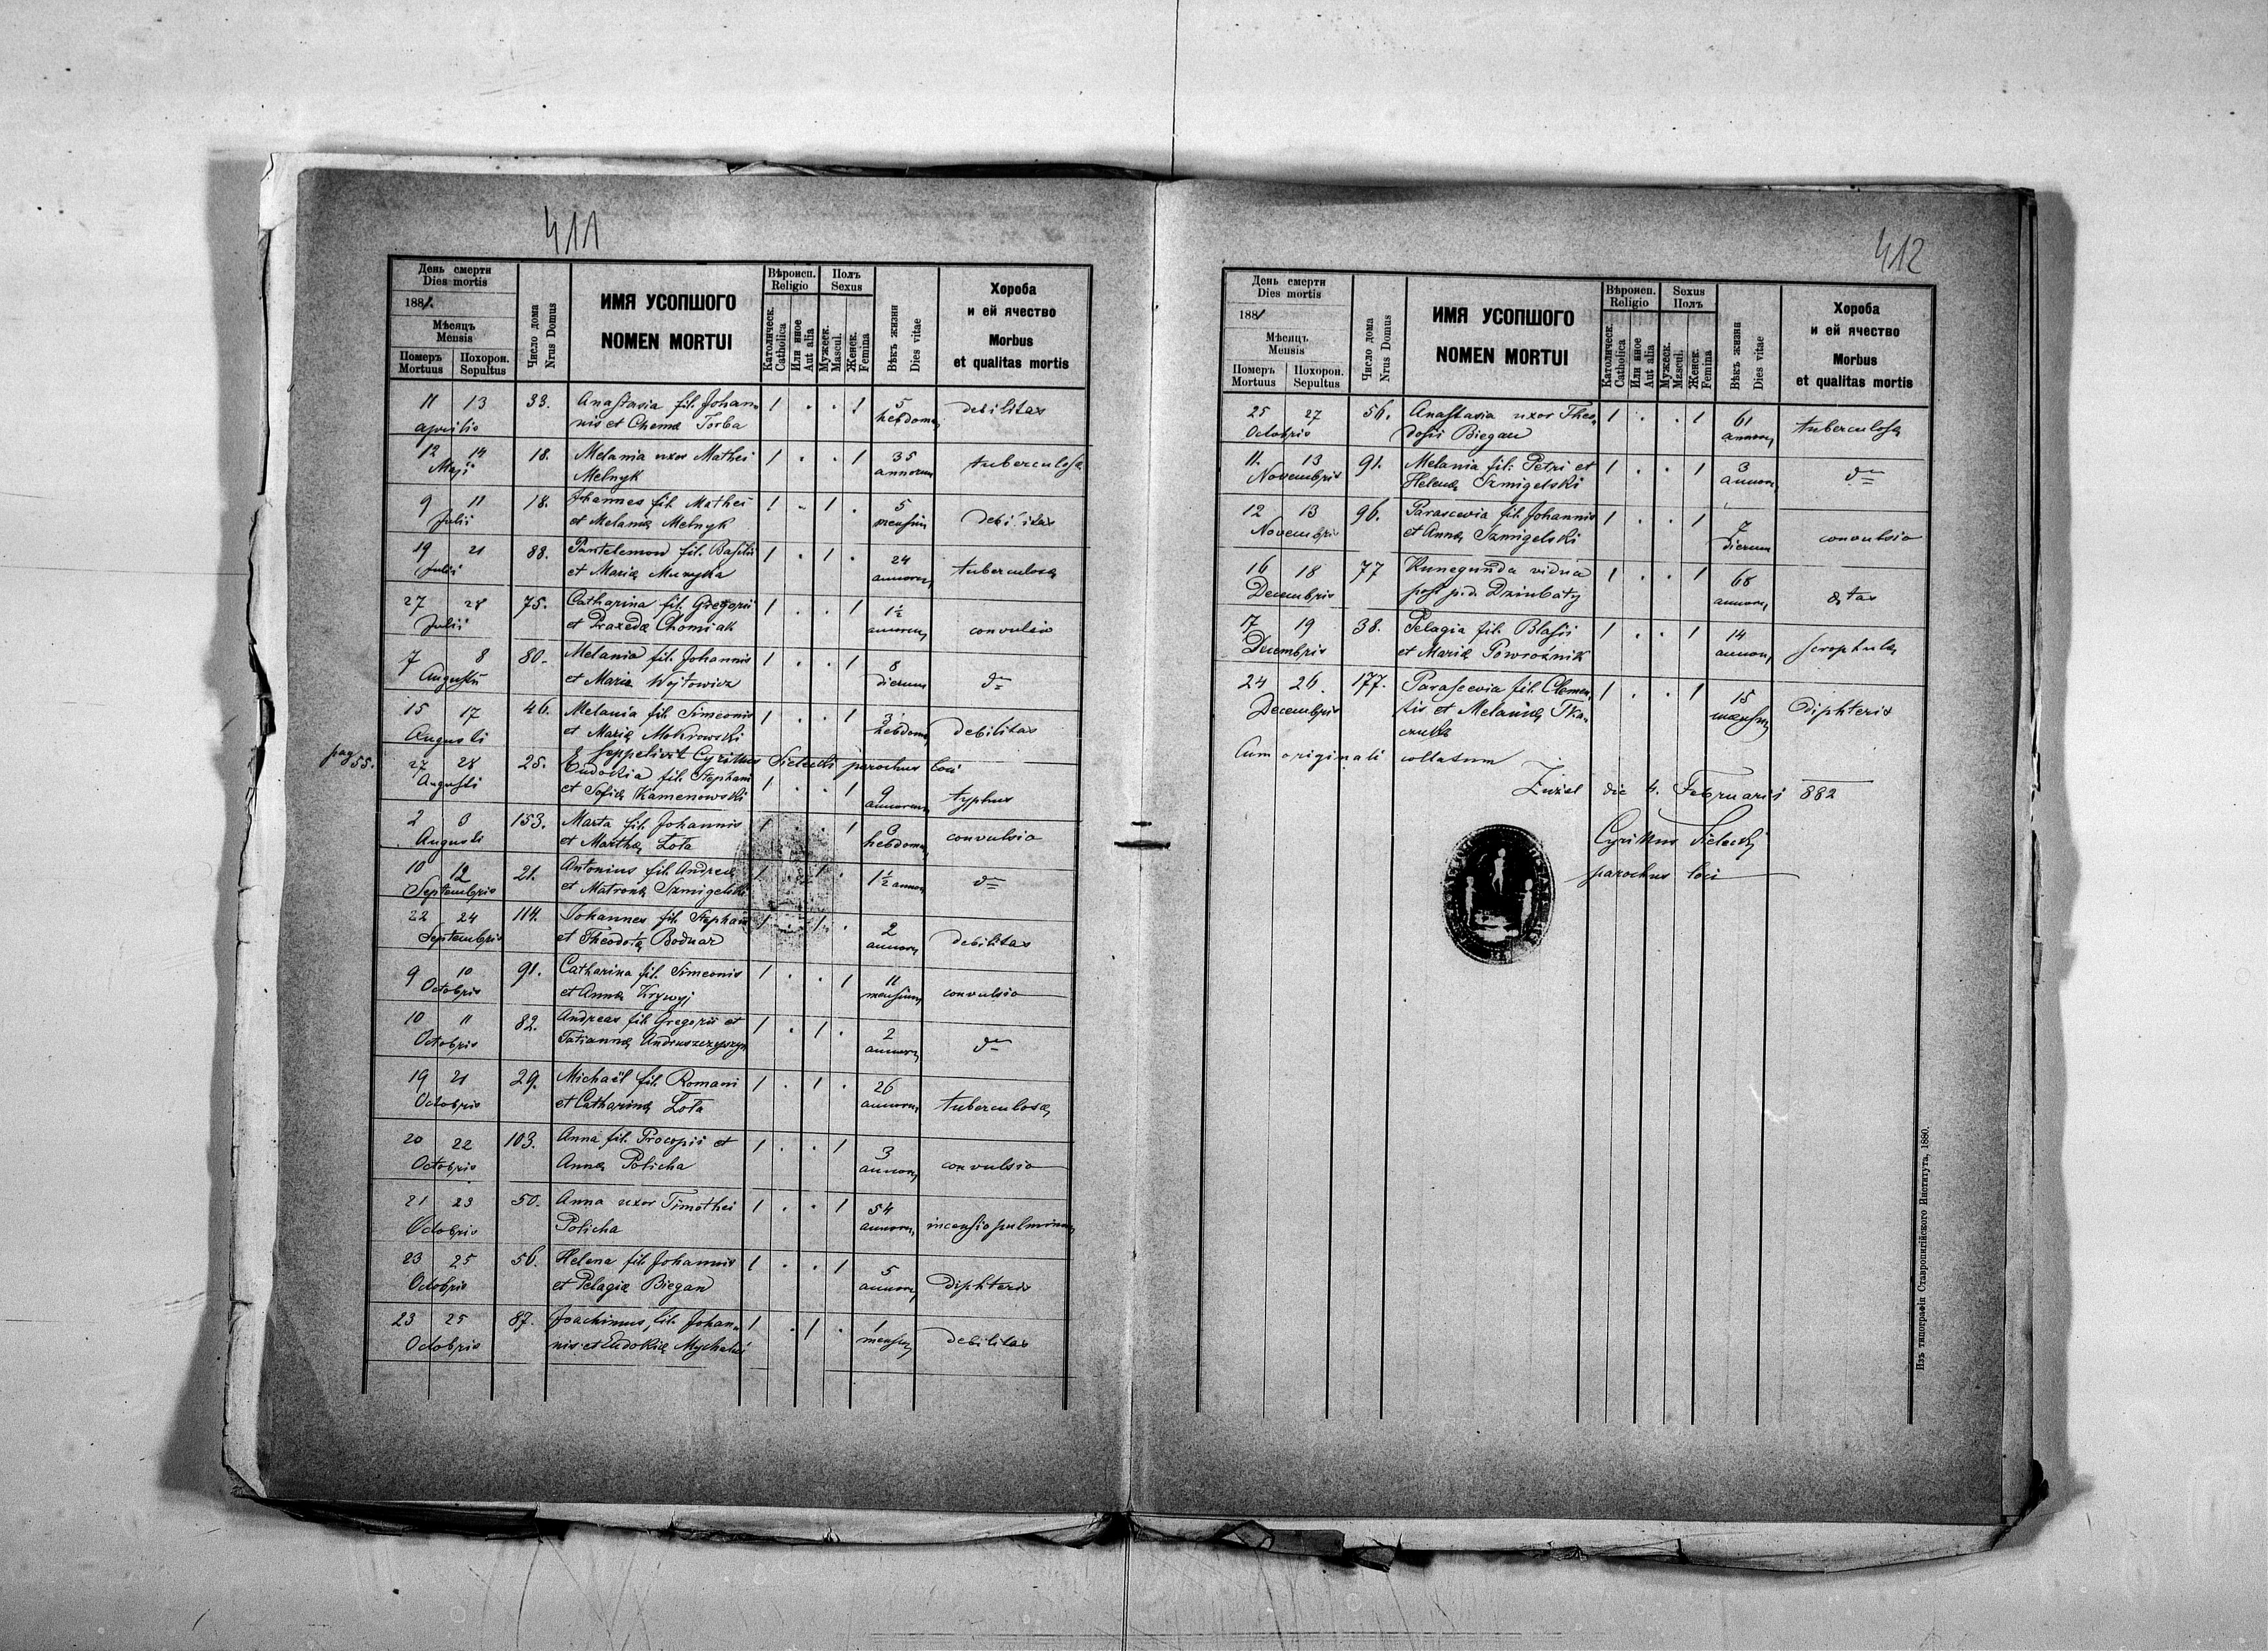 411
День смерти
Dies mortis
1881.
Мѣсяцъ
Mensis
Померъ Похорон.
Mortuus Sepultus
Число дома
Nrus Domus
ИМЯ УСОПШОГО
NOMEN MORTUI
Вѣроисп.
Religio
Католическ.
Catholica
Или иное
Aut alia
Полъ
Sexus
Мужеск.
Mascul.
Женск.
Femina
Вѣкъ жизни
Dies vitae
Хороба
и ей ячество
Morbus
et qualitas mortis
11 13 33. Anastasia fil. Johan- 1 . . 1 5 debilitas
aprilis nis et Chemæ Torba hebdom.
12 14 18. Melania uxor Mathei 1 . . 1 35 tuberculosa
Maji Melnyk annorum
9 11 18. Johannes fil. Mathei 1 . 1 . 5 debilitas
Julii et Melaniæ Melnyk mensium
19 21 88. Pantelemon fil. Basilii 1 . 1 . 24 tuberculosa
Julii et Mariæ Muzyka annorum
27 28 75. Catharina fil. Gregorii 1 . . 1 1½ convulsio
Julii et Praxedæ Chomiak annorum
7 8 80. Melania fil. Johannis 1 . . 1 8 dto
Augusti et Mariæ Wojtowicz dierum
15 17 46. Melania fil. Simeonis 1 . . 1 3 debilitas
Augusti et Mariæ Mokrowski hebdom.
pag 55.
Seppelivit Cyrillus Sielecki parochus loci
27 28 25. Eudokia fil. Stephani 1 . . 1 9 typhus
Augusti et Sofiæ Kamenowski annorum
2 3 153. Marta fil. Johannis 1 . . 1 3 convulsio
Augusti et Marthæ Łota hebdom.
10 12 21. Antonius fil. Andreæ 1 . 1 . 1½ annor. dto
Septembris et Matronæ Szmigelski
22 24 114. Johannes fil. Stephani 1 . 1 . 2 debilitas
Septembris et Theodotæ Bodnar annorum
9 10 91. Catharina fil. Simeonis 1 . . 1 11 convulsio
Octobris et Annæ Krywyj mensium
10 11 82. Andreas fil. Gregorii et 1 . 1 . 2 dto
Octobris Tatiannæ Andruszczyszyn annorum
19 21 29. Michaël fil. Romani 1 . 1 . 26 tuberculosa
Octobris et Catharinæ Łota annorum
20 22 103. Anna fil. Procopii et 1 . . 1 3 convulsio
Octobris Annæ Policha annorum
21 23 50. Anna uxor Timothei 1 . . 1 54 incensio pulmonum
Octobris Policha annorum
23 25 56. Helena fil. Johannis 1 . . 1 5 diphteris
Octobris et Pelagiæ Biegan annorum
23 25 87. Joachimus, fil. Johan- 1 . 1 . 1 debilitas
Octobris nis et Eudokiæ Mychalui mensium
412
День смерти
Dies mortis
1881
Мѣсяцъ
Mensis
Померъ Похорон.
Mortuus Sepultus
Число дома
Nrus Domus
ИМЯ УСОПШОГО
NOMEN MORTUI
Вѣроисп.
Religio
Католическ.
Catholica
Или иное
Aut alia
Sexus
Полъ
Мужеск.
Mascul.
Женск.
Femina
Вѣкъ жизни
Dies vitae
Хороба
и ей ячество
Morbus
et qualitas mortis
25 27 56. Anastasia uxor Theo- 1 . . 1 61 tuberculosa
Octobris dosii Biegan annorum
11. 13 91. Melania fil. Petri et 1 . . 1 3 dto
Novembris Helenæ Szmigelski annorum
12 13 96. Parascevia fil. Johannis 1 . . 1 7 convulsio
Novembris et Annæ Szmigelski dierum
16 18 77 Kunegunda vidua 1 . . 1 68 ætas
Decembris post p.d. Dziubaty annorum
17 19 38. Pelagia fil. Blasii 1 . . 1 14 scrophula
Decembris et Mariæ Powroźnik annorum
24 26. 177. Parascevia fil. Clemen- 1 . . 1 15 diphteris
Decembris tis et Melaniæ Tka- mensium
czuk
Cum originali collatum
Żużel die 4. Februarii 882
Cyrillus Sielecki
parochus loci
Изъ типографіи Ставропигійского Института, 1880.